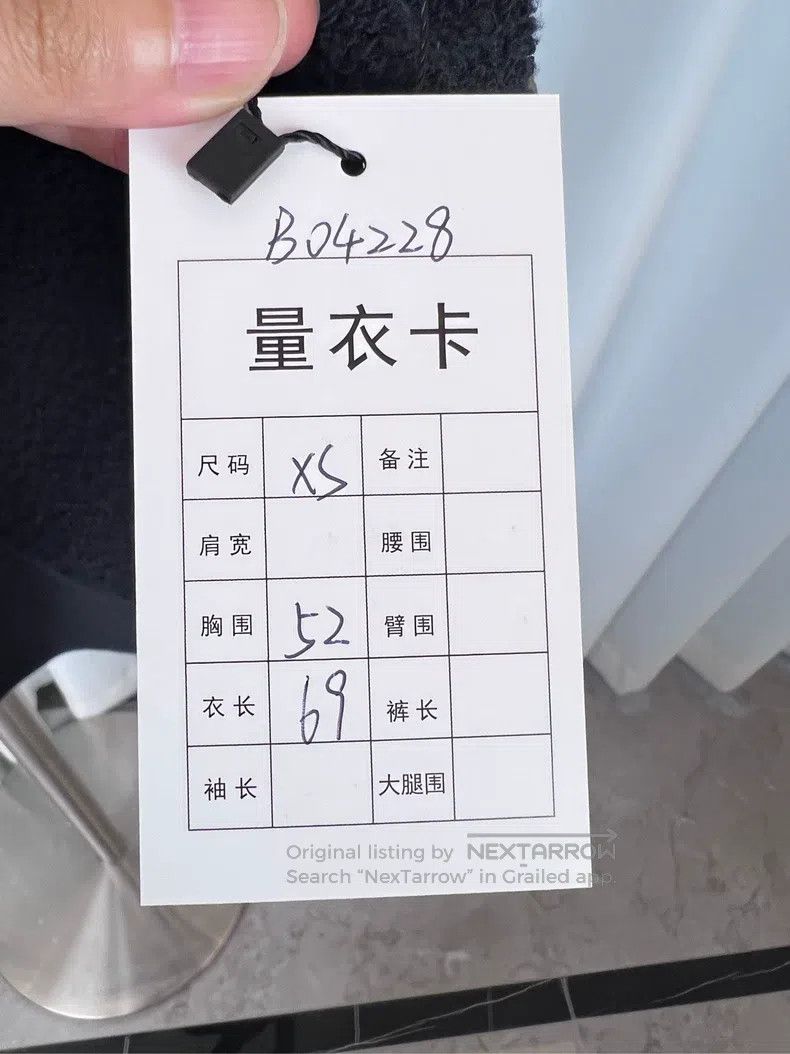 B04228
量衣卡
尺码 XS 备注
肩宽 腰围
胸围 52 臂围
衣长 69 裤长
袖长 大腿围
Original listing by NEXTARROW
Search “NexTarrow” in Grailed app.